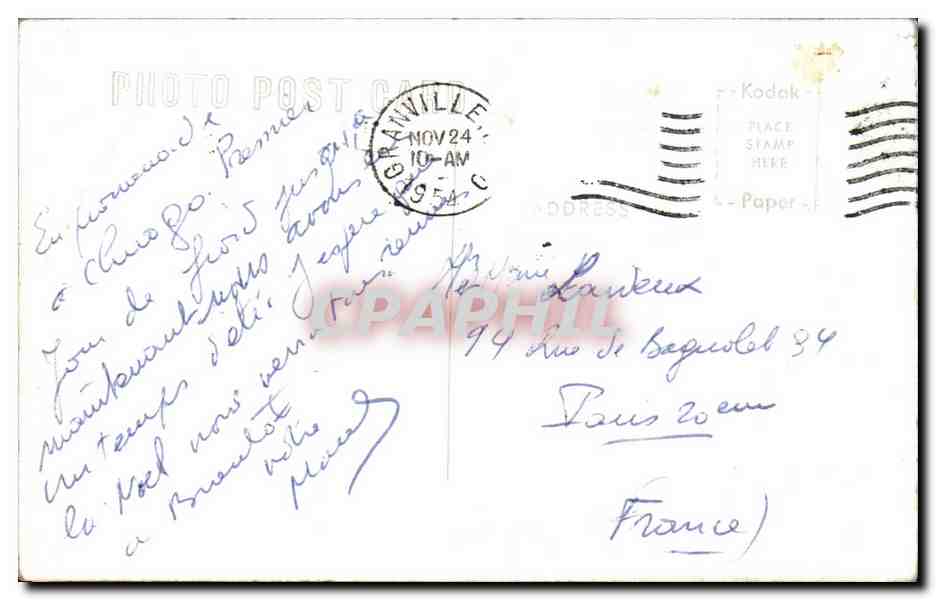 PHOTO POST CARD
GRANVILLE
NOV 24
10-AM
1954
Kodak
PLACE
STAMP
HERE
Paper
ADDRESS
En promenade
a Chicago. Premier
Jour de froid jusqu'a
maintenant nous avons eu
un temps d'été. J'espère que
la Noel nous verra tous reunis
a Bientôt
votre
94 Rue de Bagnolet 94
Paris 20em
(France)
CPAPHIL